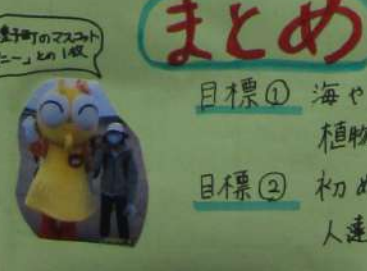 まとめ
町のマスコット
ニー」との1枚
目標① 海や
植物
目標② 初め
人達